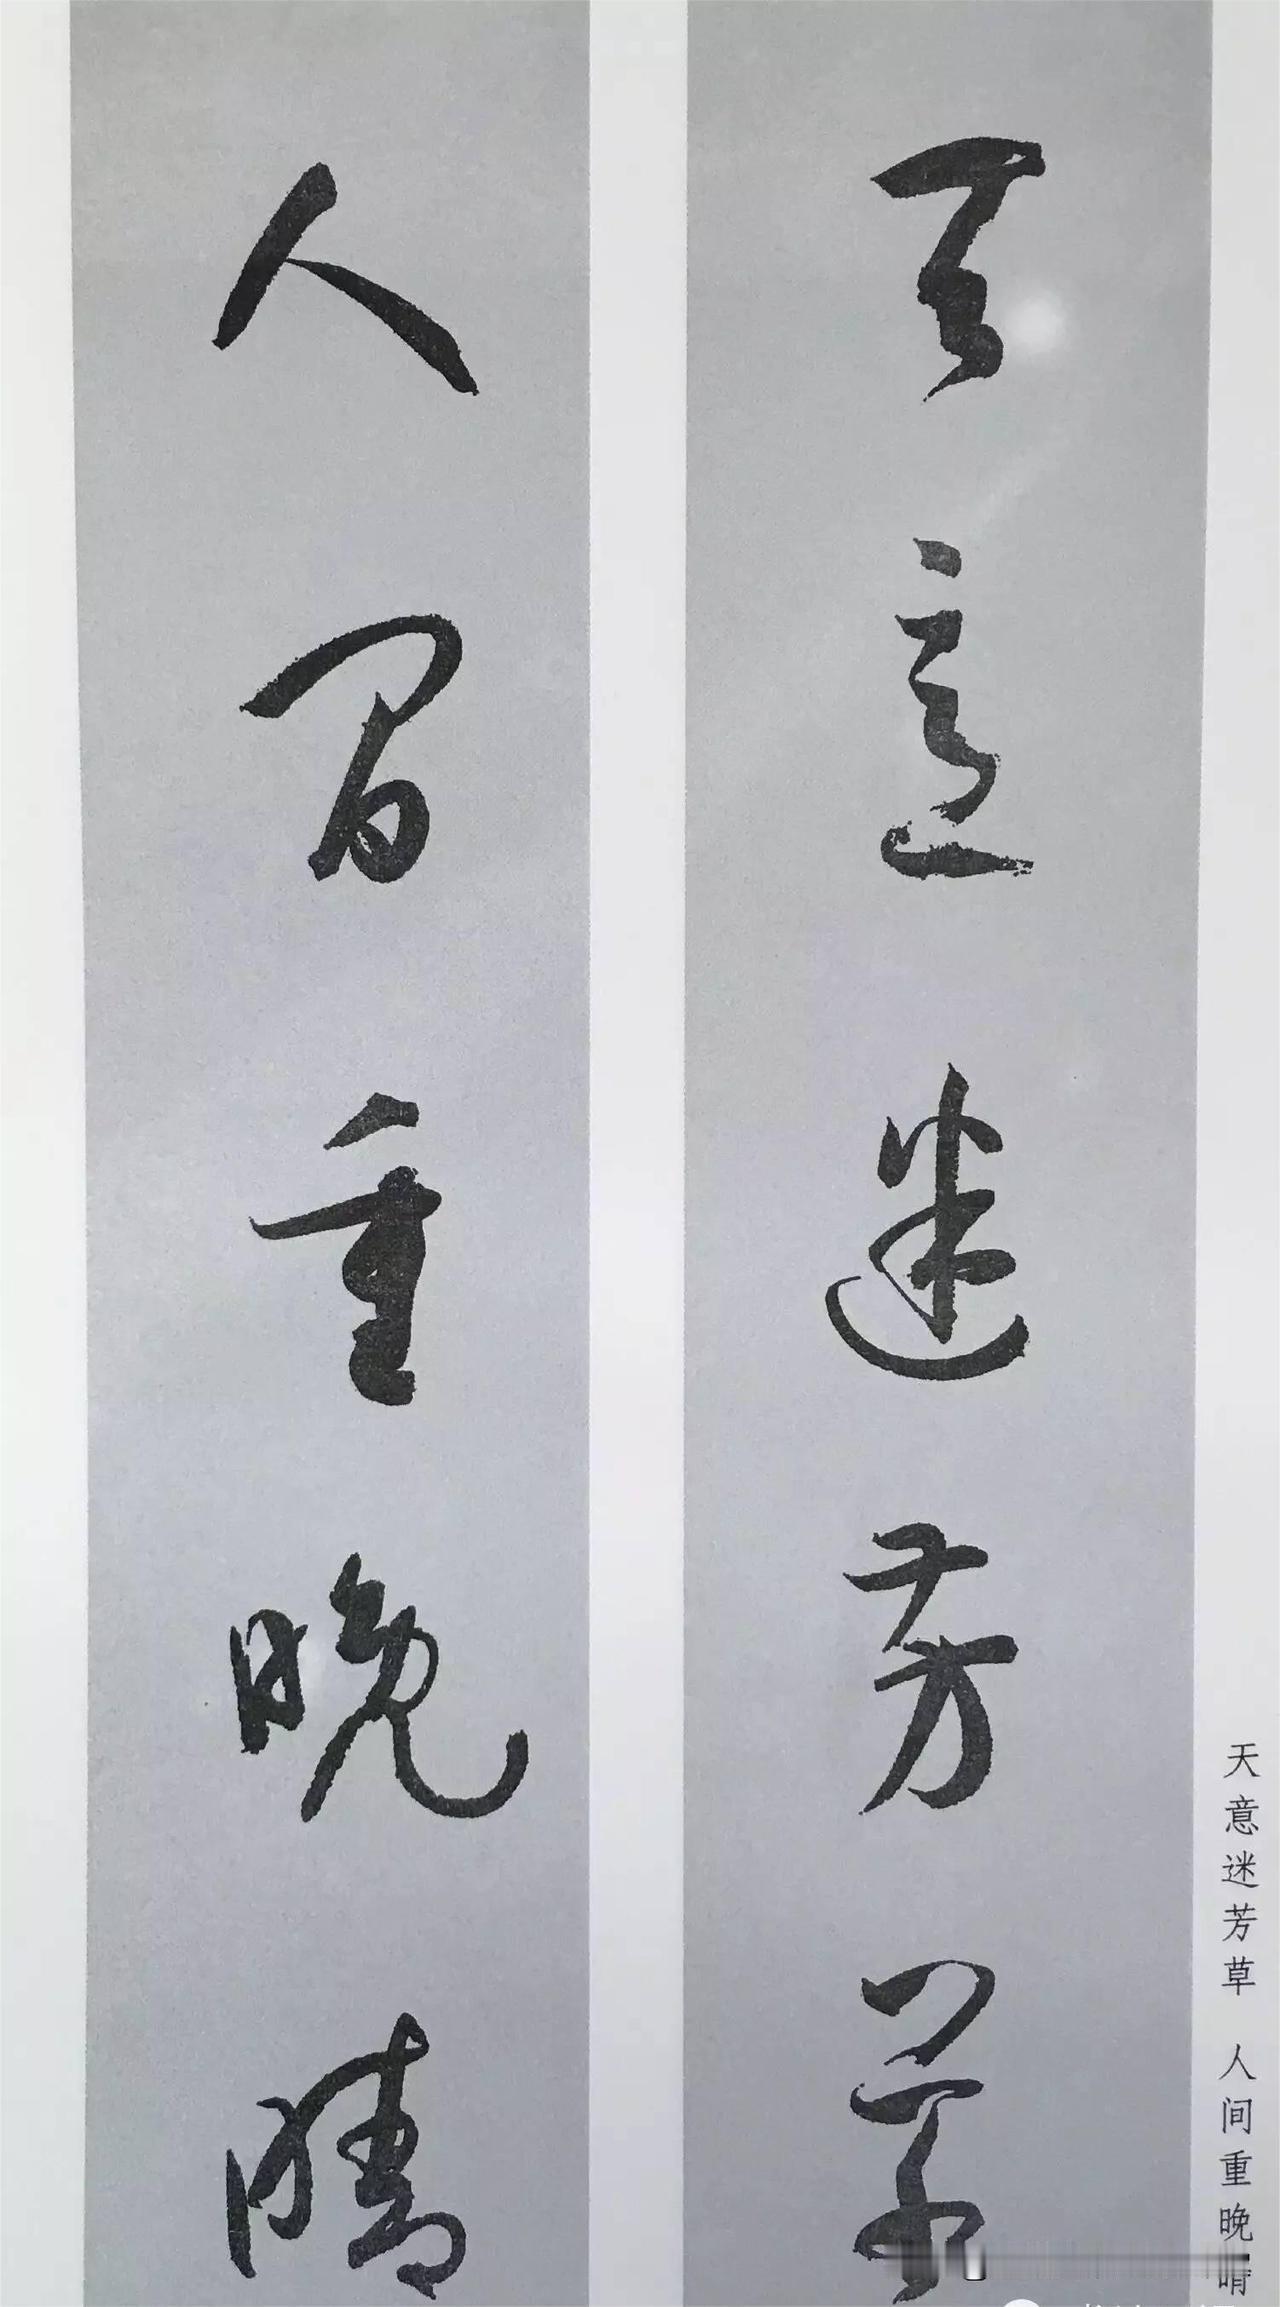 天意迷芳草
人间重晚晴
天意迷芳草 人间重晚晴